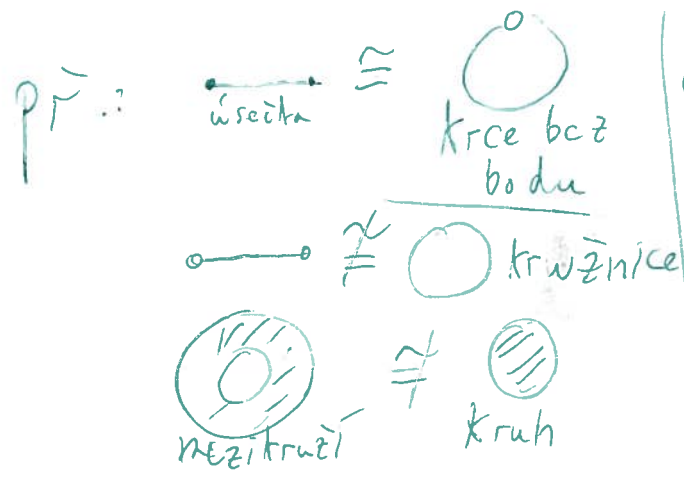 př:
≅
úsečka
krce bez
bodu
≇ kružnice
≇
mezikruží
kruh